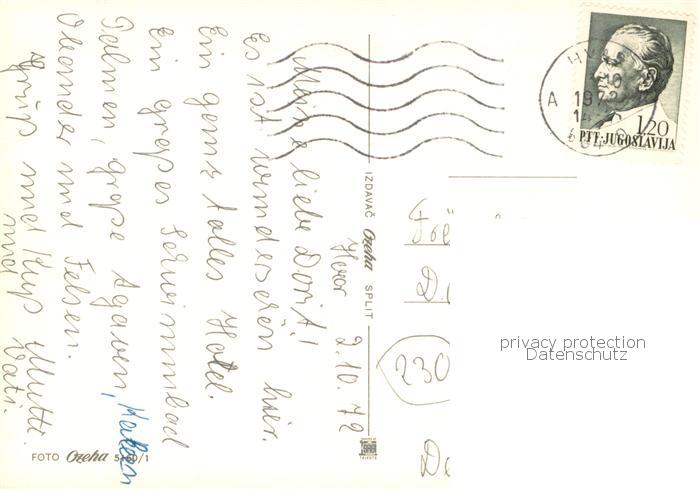 Hvar 2.10.72
Meine liebe Dorit!
Es ist wunderschön hier.
Ein ganz tolles Hotel.
Ein großes Schwimmbad
Palmen, große Agaven, Kakteen
Oleander und Felsen.
Grüß und Kuß Mutti
und Vati.
FOTO Ozeha 5460/1
IZDAVAČ Ozeha SPLIT
HVAR
A 1972
1.20
PTT-JUGOSLAVIJA
230
privacy protection
Datenschutz